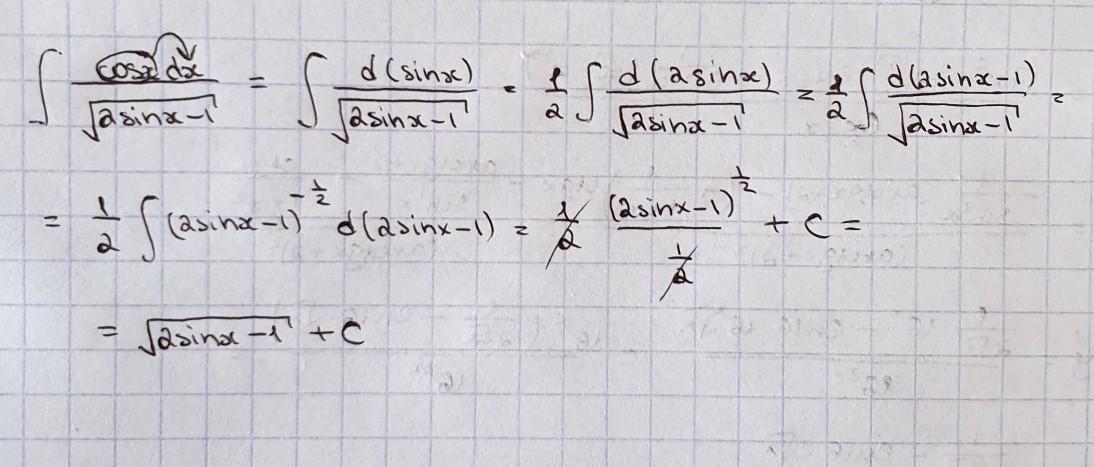 ∫ cosx dx / √(2sinx-1) = ∫ d(sinx) / √(2sinx-1) = 1/2 ∫ d(2sinx) / √(2sinx-1) = 1/2 ∫ d(2sinx-1) / √(2sinx-1) =
= 1/2 ∫ (2sinx-1)^(-1/2) d(2sinx-1) = 1/2 (2sinx-1)^(1/2) / (1/2) + C =
= √(2sinx-1) + C